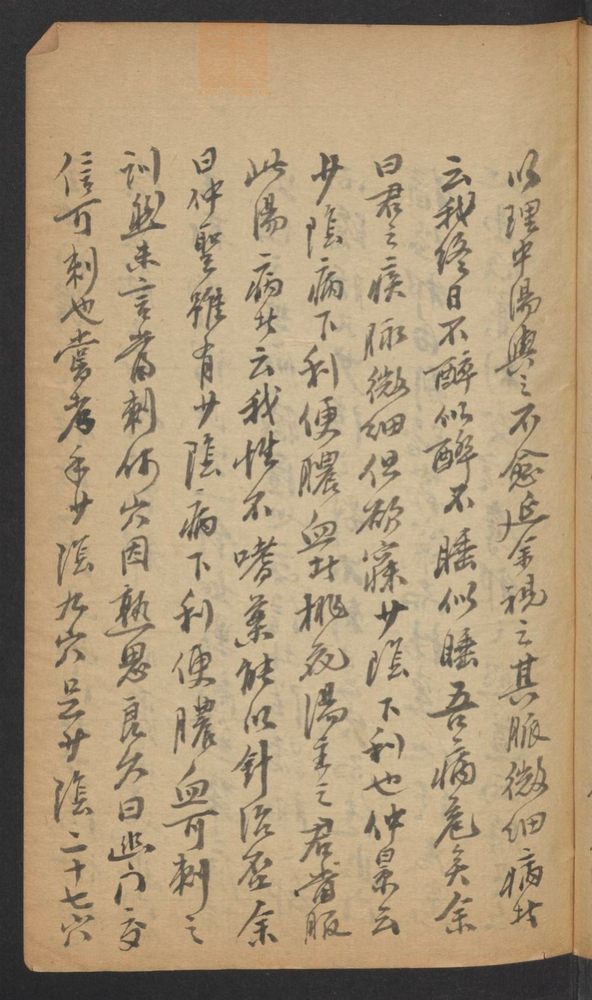 以理中湯與之不愈延余視之其脈微细病者
云我终日不醉似醉不睡似睡吾病危矣余
曰君之疾脈微细但欲寐少陰下利也仲景云
少陰病下利便膿血者桃花湯主之君當服
此湯病者云我性不嗜藥能以針治否余
曰仲聖雖有少陰病下利便膿血可刺之
訓然未言當刺何穴因熟思良久曰幽门交
信可刺也嘗考手少陰九穴足少陰二十七穴